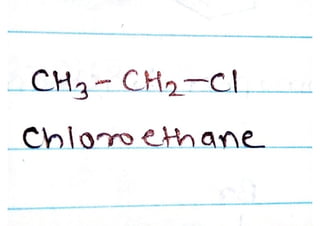 CH₃-CH₂-Cl
Chloroethane